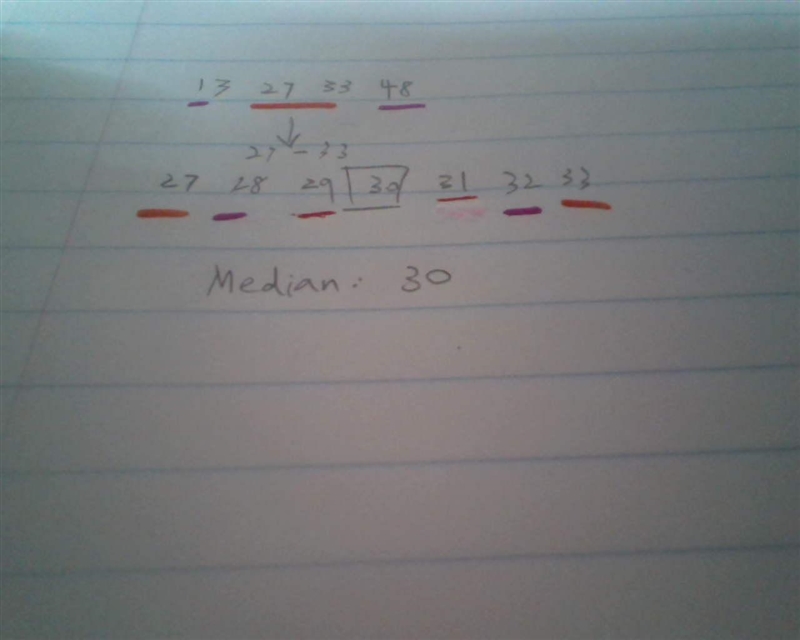 13 27 33 48
27-33
27 28 29 30 31 32 33
Median: 30